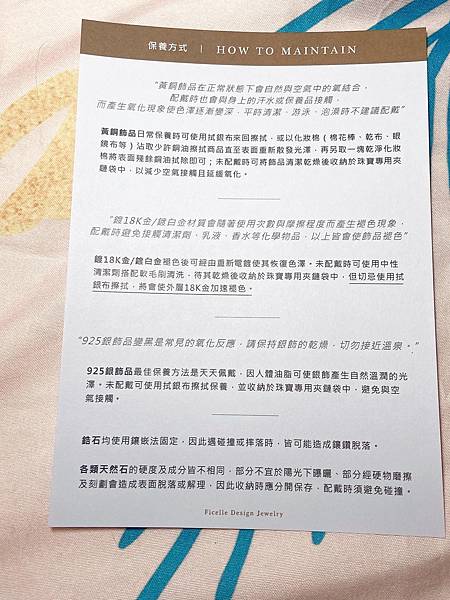 保養方式 | HOW TO MAINTAIN
“黃銅飾品在正常狀態下會自然與空氣中的氧結合，
配戴時也會與身上的汗水或保養品接觸，
而產生氧化現象使色澤逐漸變深，平時清潔、游泳、泡湯時不建議配戴”
黃銅飾品日常保養時可使用拭銀布來回擦拭，或以化妝棉（棉花棒、乾布、眼
鏡布等）沾取少許銅油擦拭商品直至表面重新散發光澤，再另取一塊乾淨化妝
棉將表面殘餘銅油拭除即可；未配戴時可將飾品清潔乾燥後收納於珠寶專用夾
鏈袋中，以減少空氣接觸且延緩氧化。
“鍍18K金/鍍白金材質會隨著使用次數與摩擦程度而產生褪色現象，
配戴時避免接觸清潔劑、乳液、香水等化學物品，以上皆會使飾品褪色”
鍍18K金/鍍白金褪色後可經由重新電鍍使其恢復色澤。未配戴時可使用中性
清潔劑搭配軟毛刷清洗，待其乾燥後收納於珠寶專用夾鏈袋中，但切忌使用拭
銀布擦拭，將會使外層18K金加速褪色。
“925銀飾品變黑是常見的氧化反應，請保持銀飾的乾燥，切勿接近溫泉。”
925銀飾品最佳保養方法是天天佩戴，因人體油脂可使銀飾產生自然溫潤的光
澤。未配戴可使用拭銀布擦拭保養，並收納於珠寶專用夾鏈袋中，避免與空
氣接觸。
鋯石均使用鑲嵌法固定，因此遇碰撞或摔落時，皆可能造成鑲鑽脫落。
各類天然石的硬度及成分皆不相同，部分不宜於陽光下曝曬、部分經硬物磨擦
及刻劃會造成表面脫落或解理，因此收納時應分開保存，配戴時須避免碰撞。
Ficelle Design Jewelry